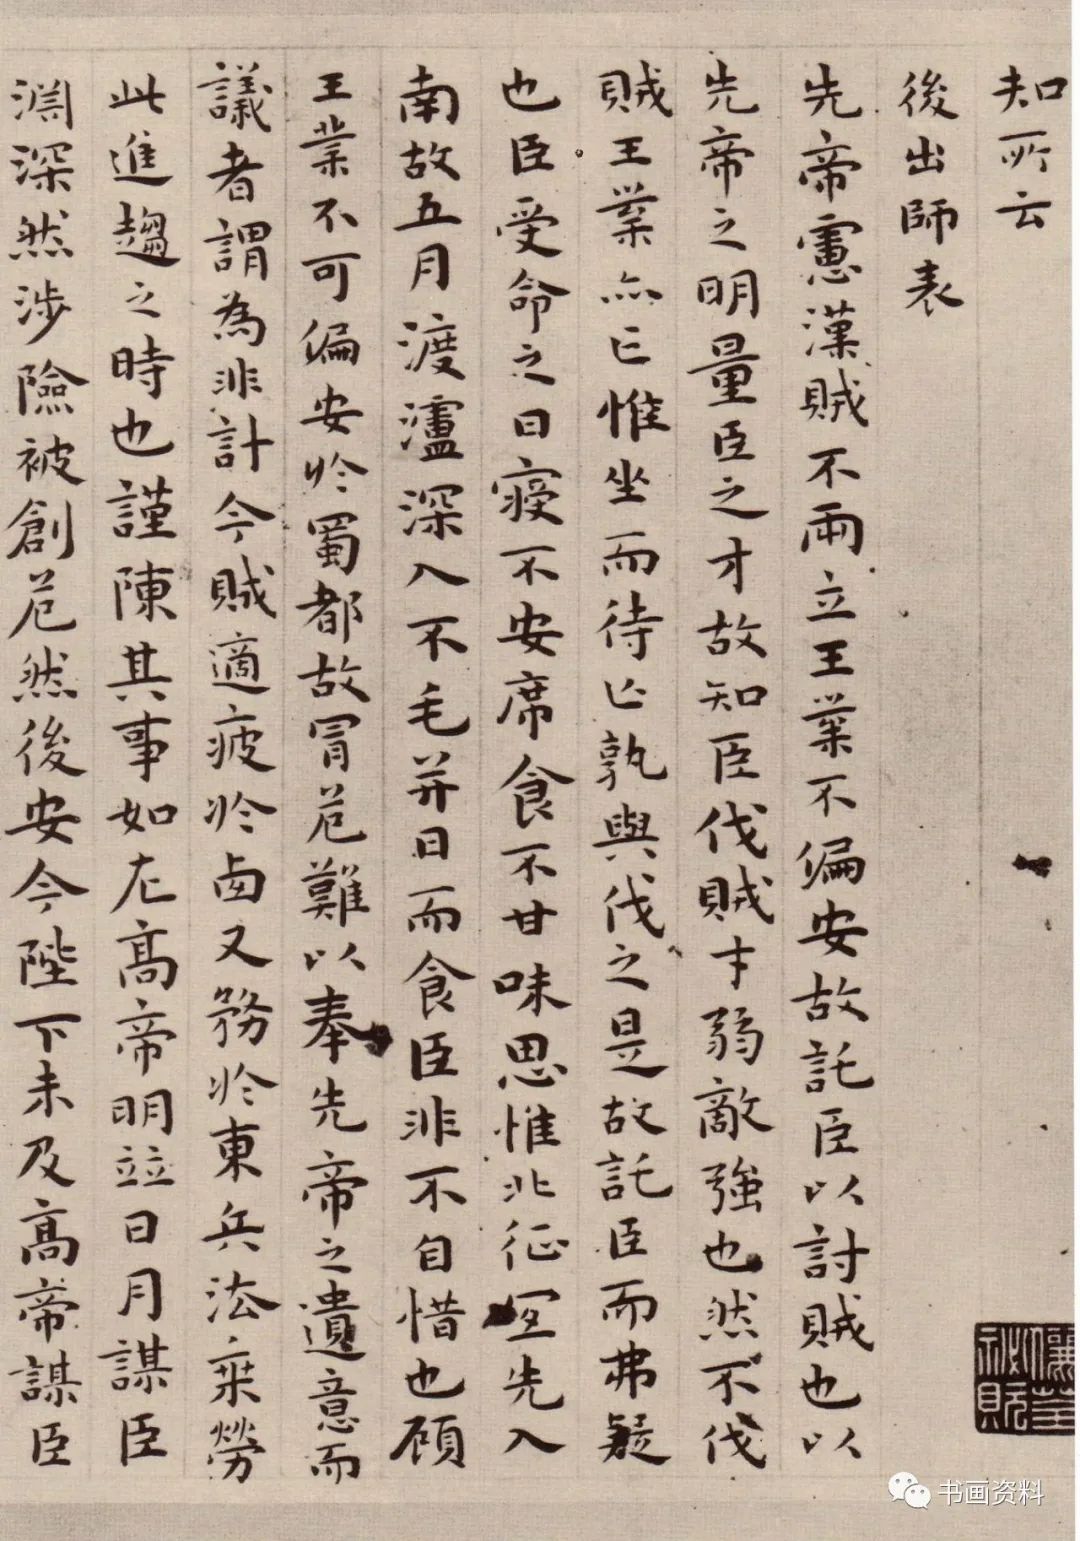 知所云
後出師表
先帝慮漢賊不兩立王業不偏安故託臣以討賊也以
先帝之明量臣之才故知臣伐賊才弱敵強也然不伐
賊王業亦亡惟坐而待亡孰與伐之是故託臣而弗疑
也臣受命之日寢不安席食不甘味思惟北征宜先入
南故五月渡瀘深入不毛并日而食臣非不自惜也顧
王業不可偏安於蜀都故冒危難以奉先帝之遺意而
議者謂為非計今賊適疲於西又務於東兵法乘勞
此進趨之時也謹陳其事如左高帝明並日月謀臣
淵深然涉險被創危然後安今陛下未及高帝謀臣
书画资料